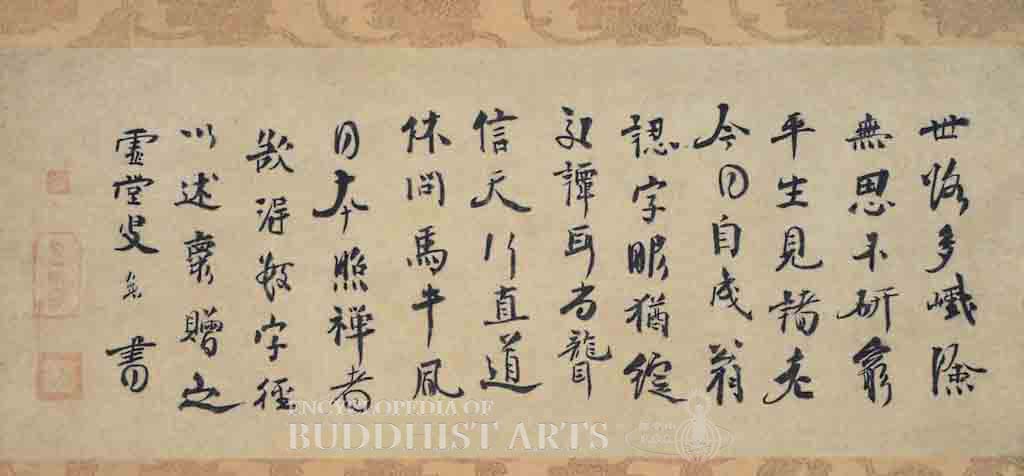 世路多巇險
無思不研窮
平生見諸老
今日自成翁
認字眼猶綻
交譚耳尚聾
信天行直道
休問馬牛風
日本照禪者
欲得數字徑
以述懷贈之
虛堂叟智愚書
ENCYCLOPEDIA OF
BUDDHIST ARTS